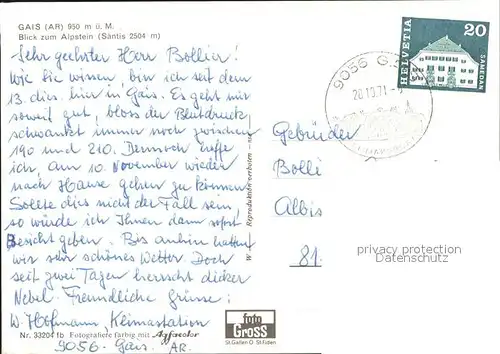 GAIS (AR) 950 m ü. M.
Blick zum Alpstein (Säntis 2504 m)
Sehr geehrter Herr Bollier!
Wie Sie wissen, bin ich seit dem
13. dies. hier in Gais. Es geht mir
soweit gut, bloss der Blutdruck
schwankt immer noch zwischen
190 und 210. Dennoch hoffe
ich, am 10. November wieder
nach Hause gehen zu können
Sollte dies nicht der Fall sein,
so würde ich Ihnen dann sofort
Bescheid geben. Bis anhin hatten
wir sehr schönes Wetter Doch
seit zwei Tagen herrscht dicker
Nebel. Freundliche Grüsse:
W. Hofmann, Klimastation
9056 - Gais. AR.
Nr. 33204 fb Fotografiere farbig mit Agfacolor
Reproduktion verboten
foto
Gross
St. Gallen O St. Fiden
HELVETIA
20
SAMEDAN
9056 G
20.10.71
Gebrüder
Bolli
Albis
81.
privacy protection
Datenschutz